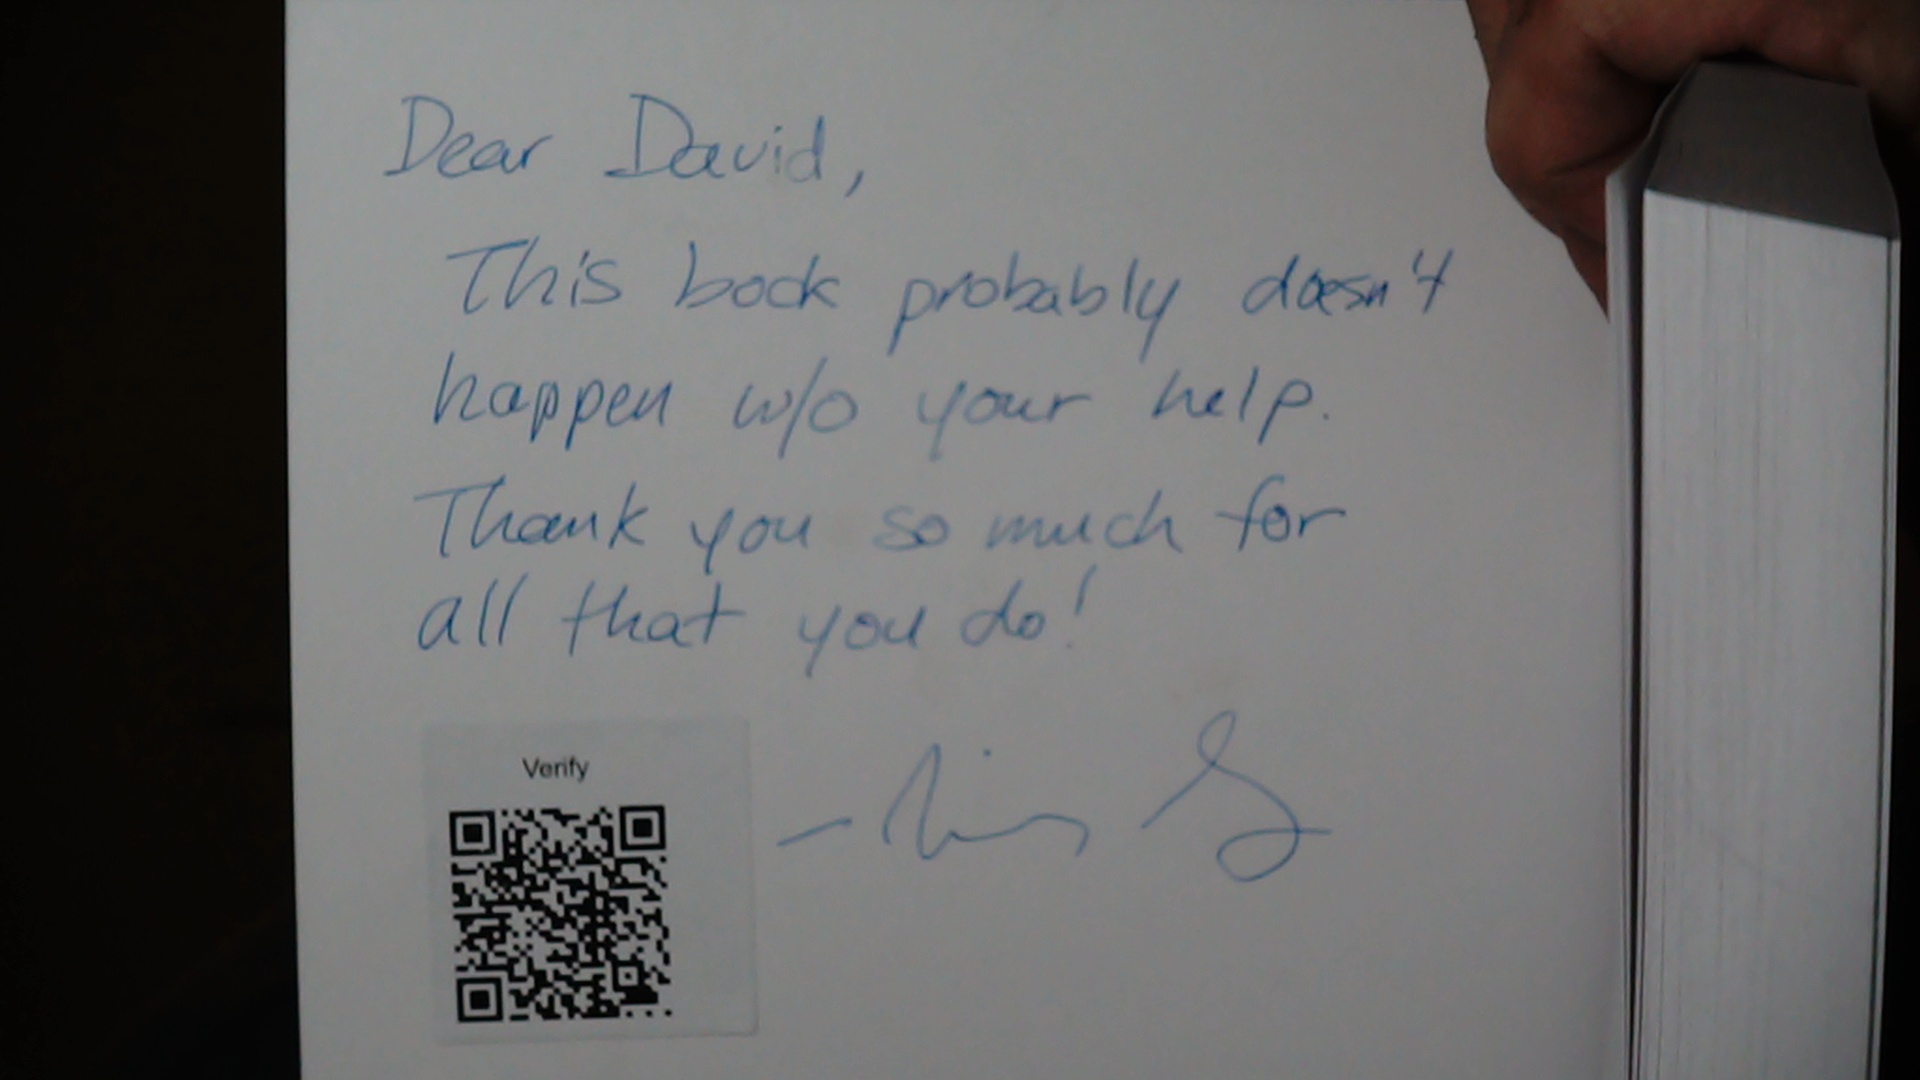 Dear David,
This book probably doesn't
happen w/o your help.
Thank you so much for
all that you do!
Verify